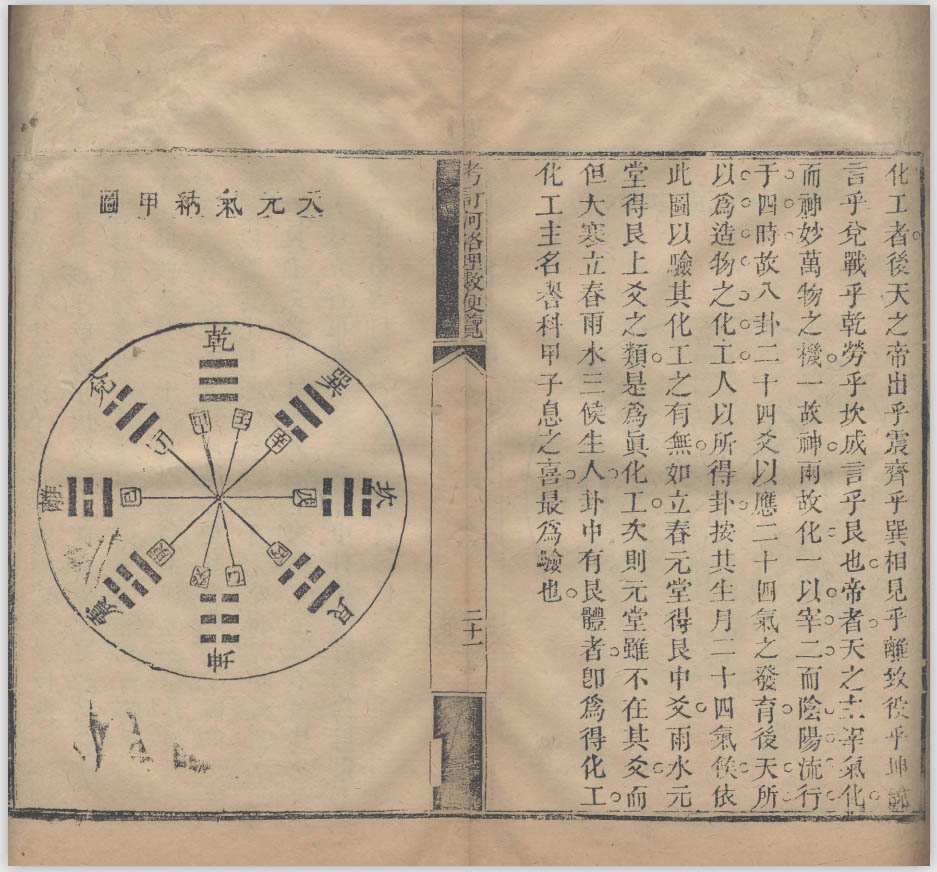 化工者後天之帝出乎震齊乎巽相見乎離致役乎坤說
言乎兌戰乎乾勞乎坎成言乎艮也帝者天之主宰氣化
而神妙萬物之機一故神兩故化一以宰二而陰陽流行
于四時故八卦二十四爻以應二十四氣之發育後天所
以爲造物之化工人以所得卦按其生月二十四氣候依
此圖以驗其化工之有無如立春元堂得艮中爻雨水元
堂得艮上爻之類是爲眞化工次則元堂雖不在其爻而
但大寒立春雨水三候生人卦中有艮體者卽爲得化工
化工主名譽科甲子息之喜最爲驗也
考訂河洛理數便覽
二十一
天元氣納甲圖
乾
巽
坎
艮
坤
震
離
兌
甲
壬
辛
戊
丙
乙
癸
庚
己
丁